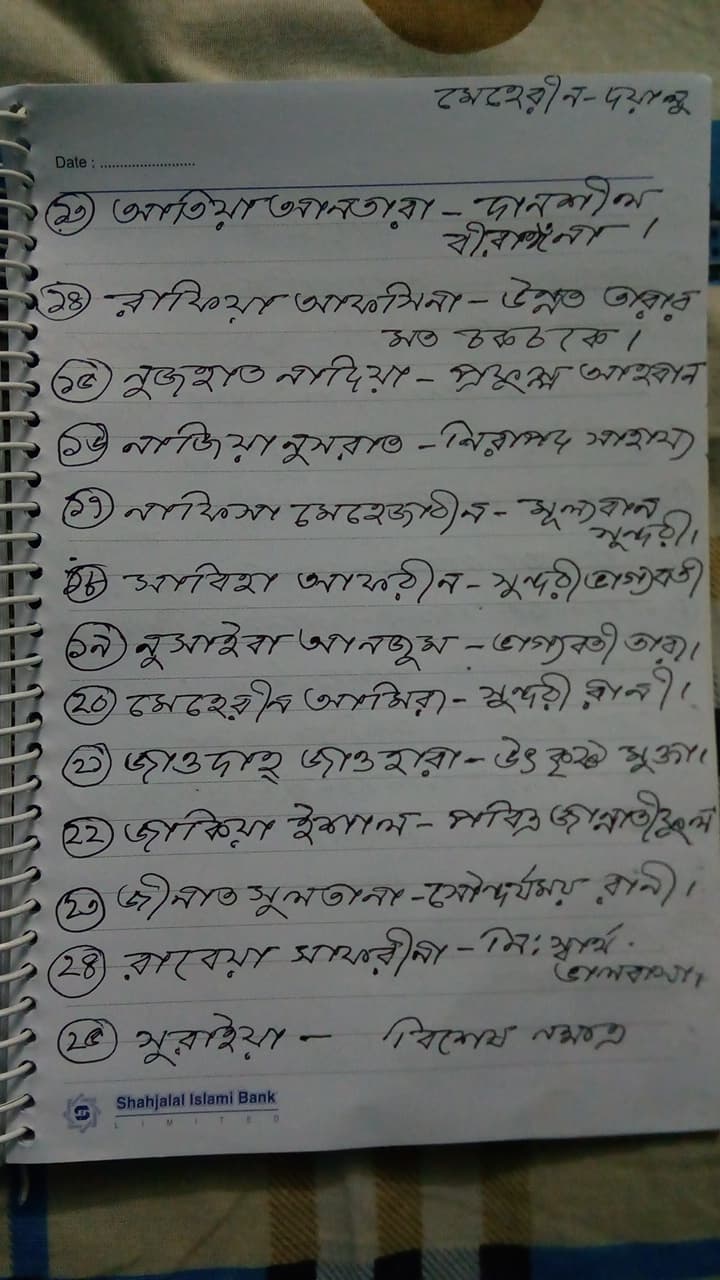 মেহেরীন-দয়ালু
Date : ........................
১৩ আতিয়া আনতারা - দানশীল
বীরাঙ্গনা ।
১৪ রাফিয়া আফসিনা - উন্নত তারার
মত চকচকে ।
১৫ নুজহাত নাদিয়া - প্রফুল্ল আহবান
১৬ নাজিয়া নুসরাত - নিরাপদ সাহায্য
১৭ নাফিসা মেহেজাবীন - মূল্যবান
সুন্দরী।
১৮ সাবিহা আফরীন - সুন্দরী ভাগ্যবতী
১৯ নুসাইবা আনজুম - ভাগ্যবতী তারা।
২০ মেহেরীন আমিরা - সুন্দরী রানী।
২১ জাওদাহ্ জাওহারা - উৎকৃষ্ট মুক্তা।
২২ জাকিয়া ইশাল - পবিত্র জান্নাতীফুল
২৩ জীনাত সুলতানা - সৌন্দর্যময় রানী।
২৪ রাবেয়া সাফরীনা - নি:স্বার্থ
ভালবাসা।
২৫ সুরাইয়া - বিশেষ নক্ষত্র
Shahjalal Islami Bank
LIMITED